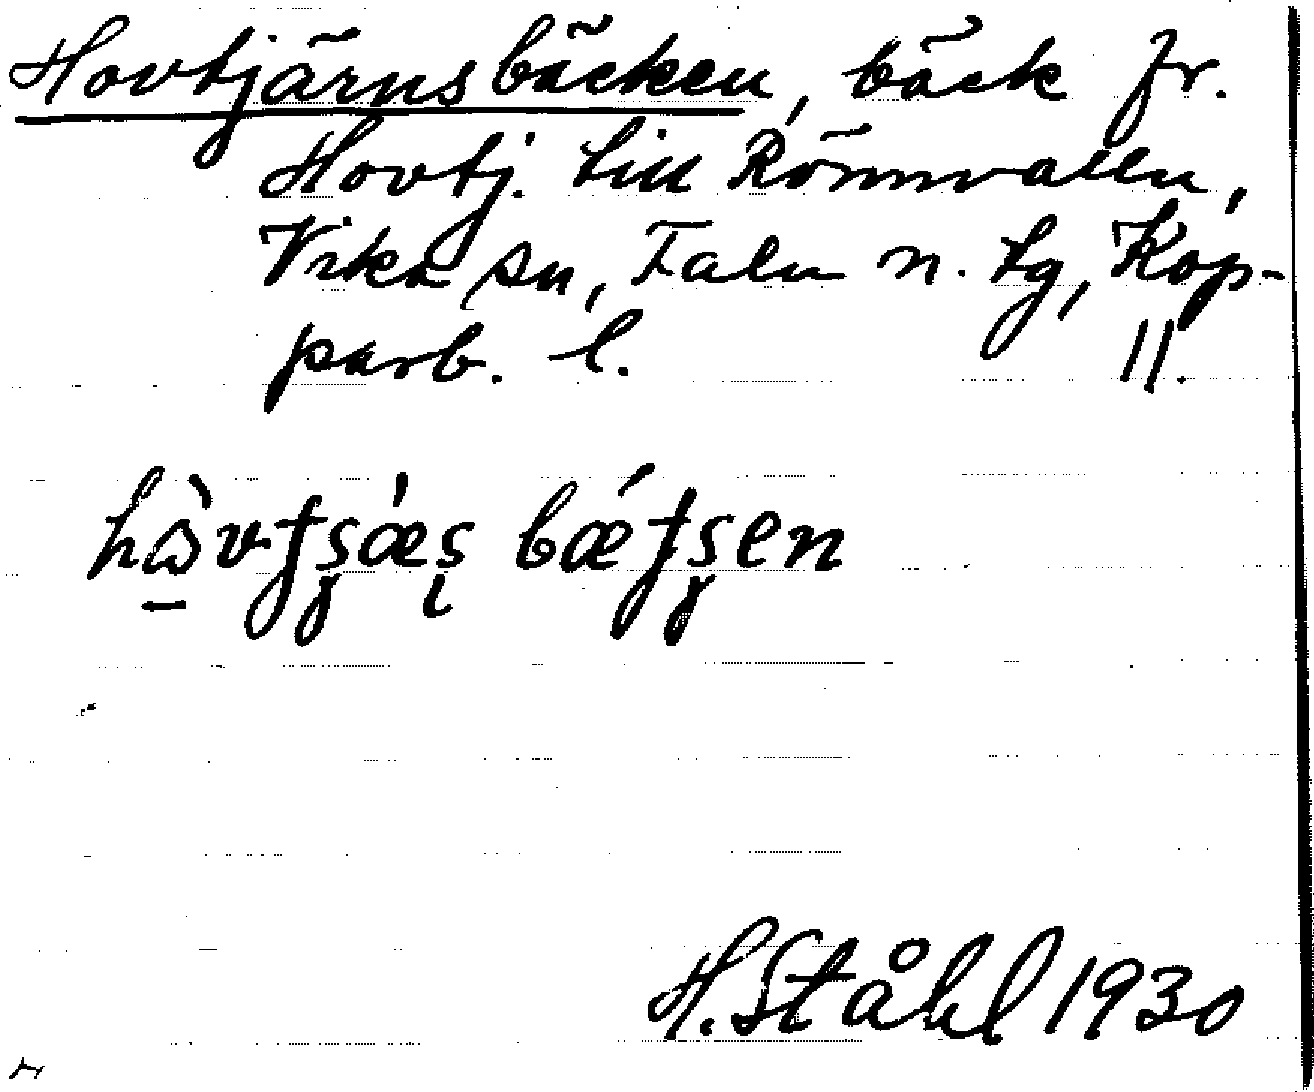 Hovtjärnsbäcken, bäck fr.
Hovtj. till Rönnvallen,
Vika sn, Falu n. tg, Kop-
parb. l. 11.
H. Ståhl 1930